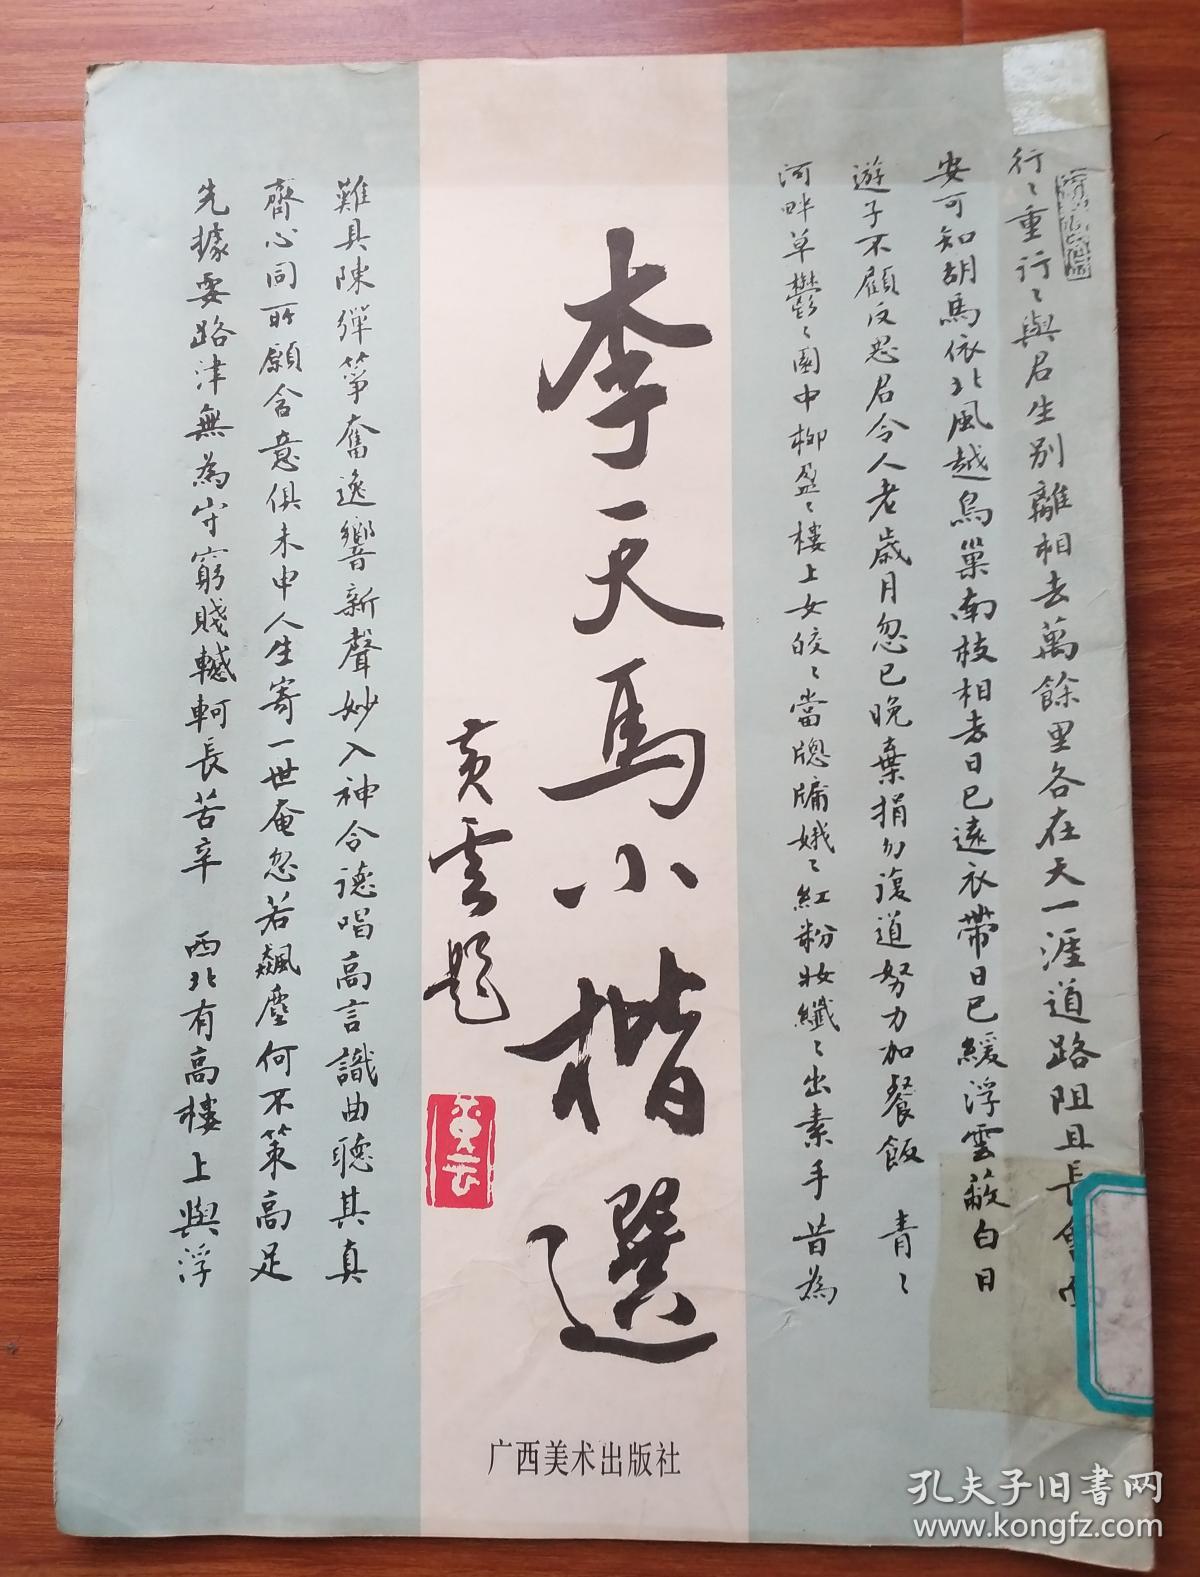 行〻重行〻與君生別離相去萬餘里各在天一涯道路阻且長會面
安可知胡馬依北風越鳥巢南枝相去日已遠衣帶日已緩浮雲蔽白日
遊子不顧反思君令人老歲月忽已晚棄捐勿復道努力加餐飯 青〻
河畔草鬱〻園中柳盈〻樓上女皎〻當牕牖娥〻紅粉妝纖〻出素手昔為
李天馬小楷選
黃雲題
黃雲
廣西美术出版社
難具陳彈箏奮逸響新聲妙入神令德唱高言識曲聽其真
齊心同所願含意俱未申人生寄一世奄忽若飆塵何不策高足
先據要路津無為守窮賤轗軻長苦辛 西北有高樓上與浮
孔夫子旧书网
www.kongfz.com